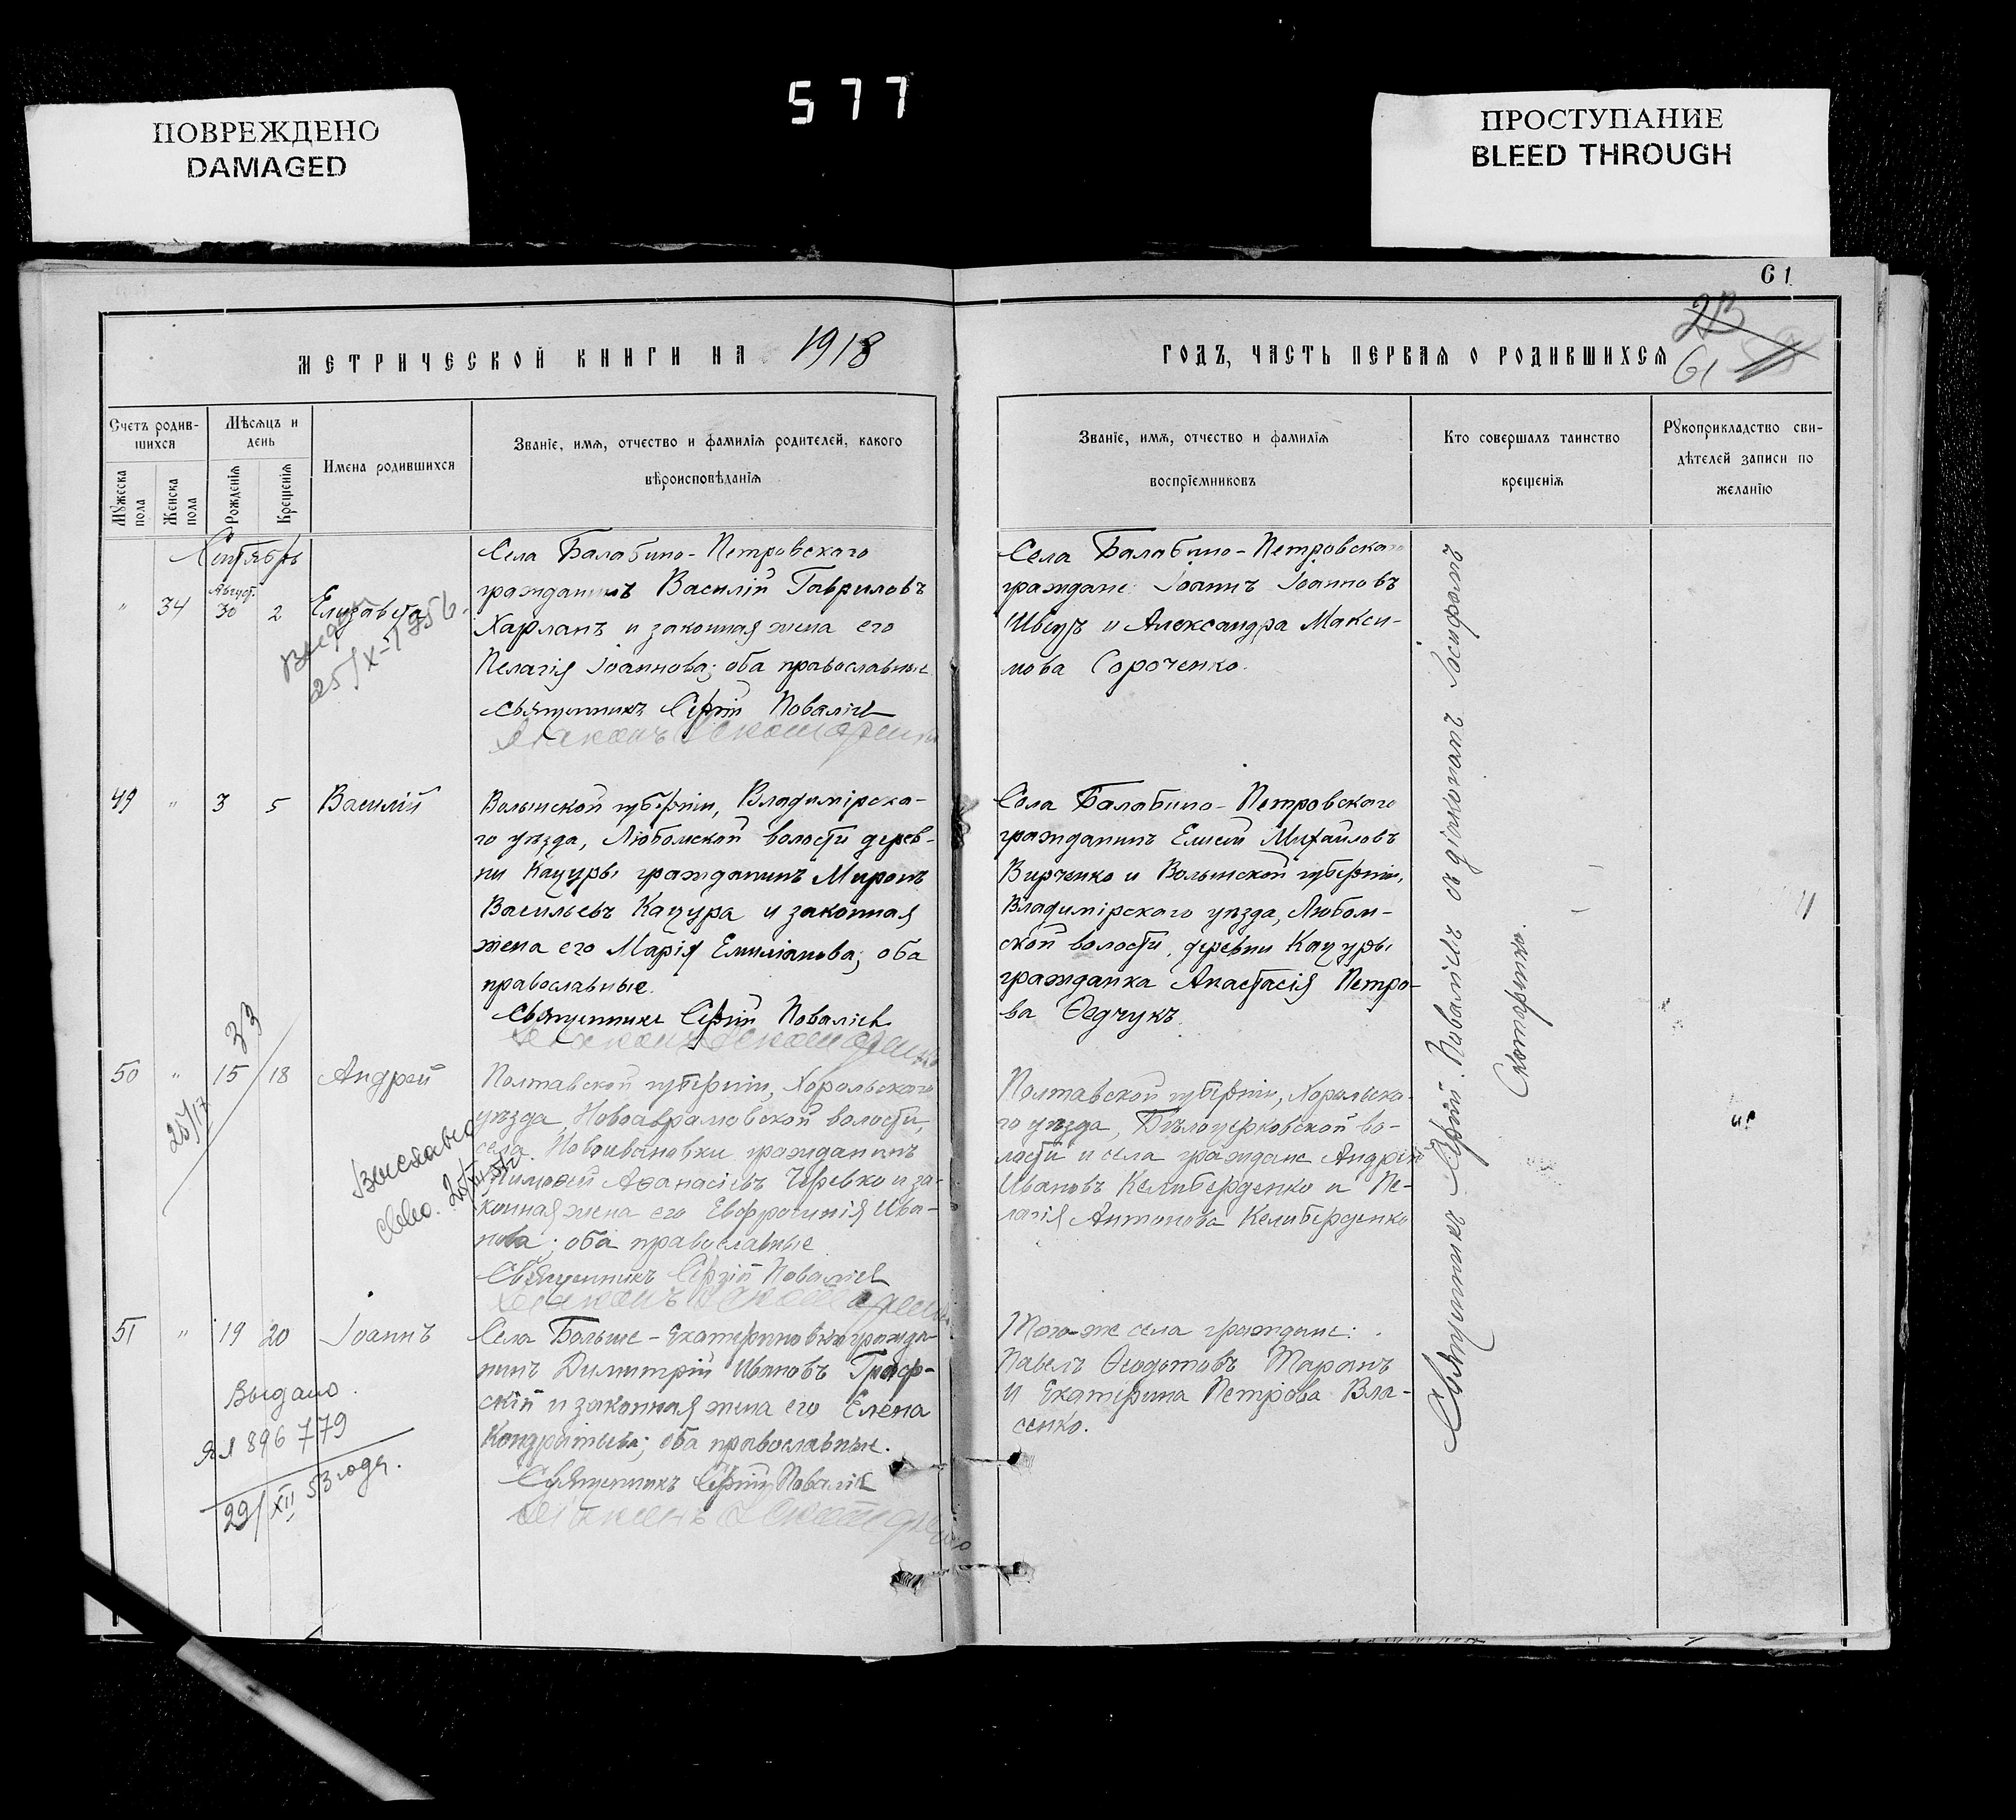 577
ПОВРЕЖДЕНО
DAMAGED
ПРОСТУПАНИЕ
BLEED THROUGH
61
23
61
МЕТРИЧЕСКОЙ КНИГИ НА 1918
ГОДЪ, ЧАСТЬ ПЕРВАЯ О РОДИВШИХСЯ
Счетъ родив-
шихся
Мужеска
пола
Женска
пола
Мѣсяцъ и
день
Рожденія
Крещенія
Имена родившихся
Званіе, имя, отчество и фамилія родителей, какого
вѣроисповѣданія
Званіе, имя, отчество и фамилія
воспріемниковъ
Кто совершалъ таинство
крещенія
Рукоприкладство сви-
дѣтелей записи по
желанію
Сентябрь
Август.
" 34 30 2 Елизавета
25/X-1956
Села Балабино-Петровского
гражданинъ Василій Гавриловъ
Харланъ и законная жена его
Пелагія Іоаннова; оба православные
Священникъ Сергій Поваличъ
Діаконъ Скотаренко
Села Балабино-Петровского
граждане: Іоаннъ Іоанновъ
Швецъ и Александра Макси-
мова Сороченко.
49 " 3 5 Василій
Волынской губерніи, Владимірска-
го уѣзда, Любомской волости дерев-
ни Кацуры гражданинъ Миронъ
Васильевъ Кацура и законная
жена его Марія Емиліанова; оба
православные.
Священникъ Сергій Поваличъ
Діаконъ Скотаренко
Села Балабино-Петровского
гражданинъ Елисей Михайловъ
Вирченко и Волынской губерніи,
Владимірского уѣзда, Любом-
ской волости, деревни Кацуры
гражданка Анастасія Петро-
ва Ѳедчукъ.
33
50 " 15 18 Андрей
Выслано
Полтавской губерніи, Хорольского
уѣзда, Новоаврамовской волости,
села Новоивановки гражданинъ
Тимоѳей Аѳанасіевъ Черевко и за-
конная жена его Евфросинія Ива-
нова; оба православные
Священникъ Сергій Поваличъ
Діаконъ Скотаренко
Полтавской губерніи, Хорольска-
го уѣзда, Бѣлоцерковской во-
лости и села граждане Андрей
Ивановъ Келиберденко и Пе-
лагія Антонова Келиберденко
51 " 19 20 Іоаннъ
Выдано
ЯЯ 896779
29/XII 53 года.
Села Больше-Екатериновки гражда-
нинъ Димитрій Ивановъ Граф-
скій и законная жена его Елена
Кондратьева; оба православные.
Священникъ Сергій Поваличъ
Діаконъ Скотаренко
Того-же села граждане:
Павелъ Ѳеодотовъ Таранъ
и Екатерина Петрова Вла-
сенко.
Священникъ Сергій Поваличъ съ діакономъ Іосифомъ
Скотаренко.